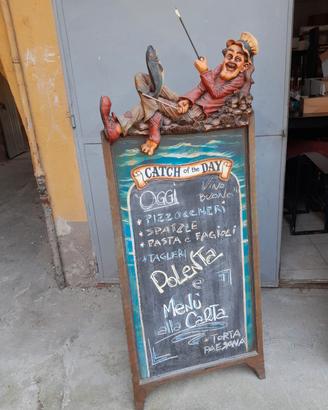 CATCH of the DAY
OGGI
VINO BUONO
* PIZZOCCHERI
* SPATZLE
* PASTA e FAGIOLI
* TAGLIERI
PoLeNTa
e
Menù
alla Carta
* TORTA
PAESANA